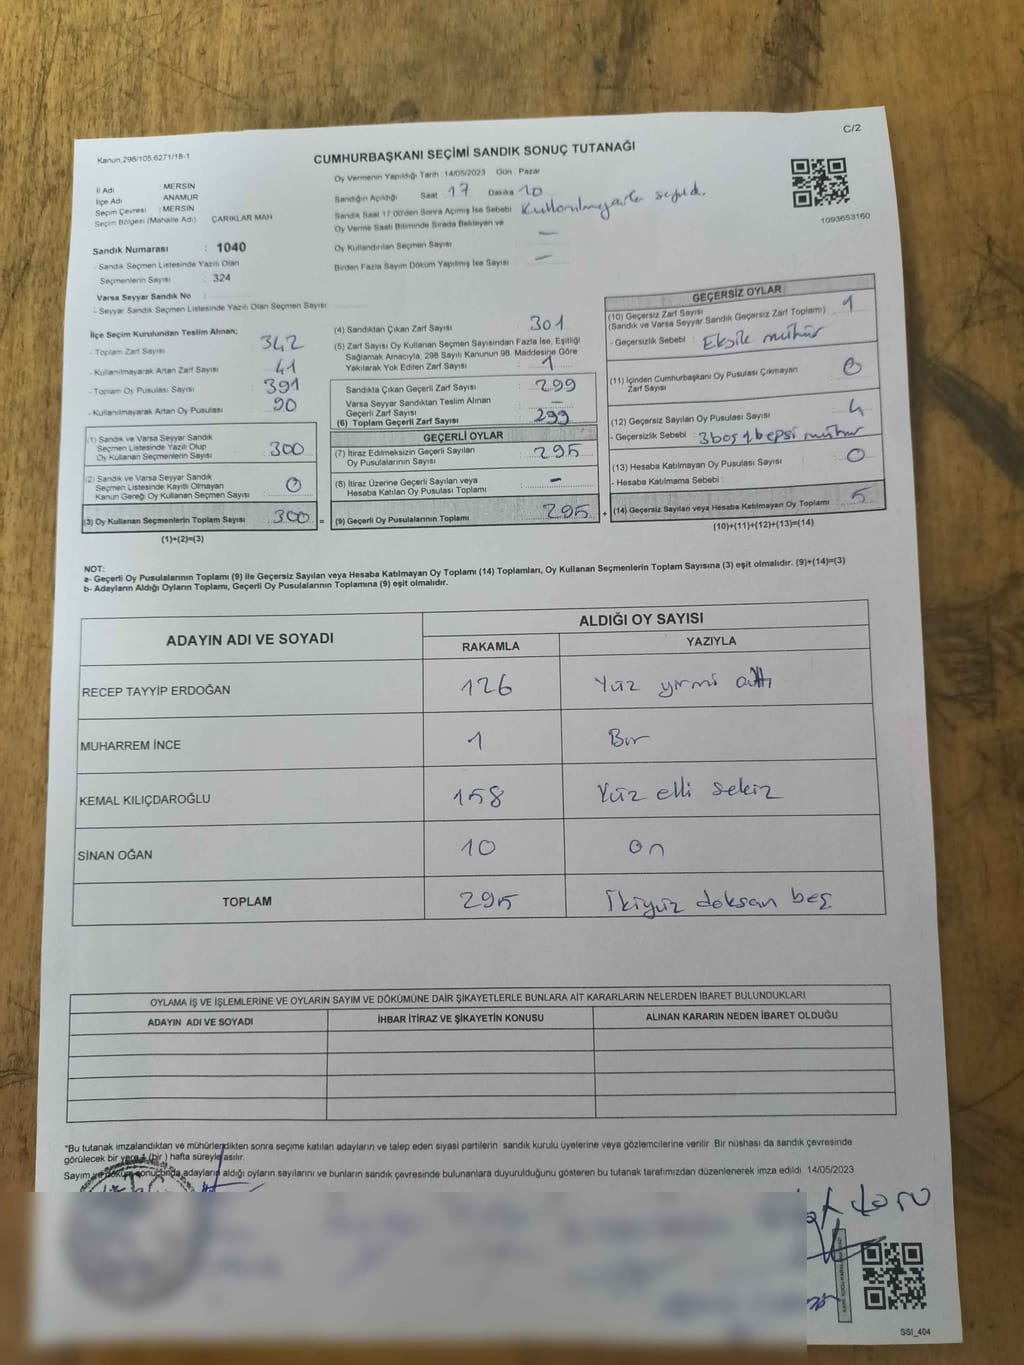 C/2
Kanun.298/105.6271/18-1
CUMHURBAŞKANI SEÇİMİ SANDIK SONUÇ TUTANAĞI
1093653160
İl Adı : MERSİN
İlçe Adı ANAMUR
Seçim Çevresi : MERSİN
Seçim Bölgesi (Mahalle Adı) ÇARIKLAR MAH
Sandık Numarası : 1040
- Sandık Seçmen Listesinde Yazılı Olan
Seçmenlerin Sayısı : 324
Varsa Seyyar Sandık No :
- Seyyar Sandık Seçmen Listesinde Yazılı Olan Seçmen Sayısı
Oy Vermenin Yapıldığı Tarih :14/05/2023 Gün : Pazar
Sandığın Açıldığı Saat 17 Dakika 10
Sandık Saat 17:00'den Sonra Açımış İse Sebebi Kullanılmayanlar sayıldı.
Oy Verme Saati Bitiminde Sırada Bekleyen ve
Oy Kullandırılan Seçmen Sayısı —
Birden Fazla Sayım Döküm Yapılmış İse Sayısı —
İlçe Seçim Kurulundan Teslim Alınan;
- Toplam Zarf Sayısı 342
- Kullanılmayarak Artan Zarf Sayısı 41
- Toplam Oy Pusulası Sayısı 391
- Kullanılmayarak Artan Oy Pusulası 90
(1) Sandık ve Varsa Seyyar Sandık
Seçmen Listesinde Yazılı Olup
Oy Kullanan Seçmenlerin Sayısı 300
(2) Sandık ve Varsa Seyyar Sandık
Seçmen Listesinde Kayıtlı Olmayan
Kanun Gereği Oy Kullanan Seçmen Sayısı 0
(3) Oy Kullanan Seçmenlerin Toplam Sayısı 300 =
(1)+(2)=(3)
(4) Sandıktan Çıkan Zarf Sayısı 301
(5) Zarf Sayısı Oy Kullanan Seçmen Sayısından Fazla İse, Eşitliği
Sağlamak Amacıyla, 298 Sayılı Kanunun 98. Maddesine Göre
Yakılarak Yok Edilen Zarf Sayısı 1
Sandıkta Çıkan Geçerli Zarf Sayısı : 299
Varsa Seyyar Sandıktan Teslim Alınan
Geçerli Zarf Sayısı : —
(6) Toplam Geçerli Zarf Sayısı : 299
GEÇERLİ OYLAR
(7) İtiraz Edilmeksizin Geçerli Sayılan
Oy Pusulalarının Sayısı : 295
(8) İtiraz Üzerine Geçerli Sayılan veya
Hesaba Katılan Oy Pusulası Toplamı : —
(9) Geçerli Oy Pusulalarının Toplamı 295 +
GEÇERSİZ OYLAR
(10) Geçersiz Zarf Sayısı
(Sandık ve Varsa Seyyar Sandık Geçersiz Zarf Toplamı) : 1
- Geçersizlik Sebebi : Eksik mühür
(11) İçinden Cumhurbaşkanı Oy Pusulası Çıkmayan
Zarf Sayısı 0
(12) Geçersiz Sayılan Oy Pusulası Sayısı 4
- Geçersizlik Sebebi : 3 boş 1 hepsi mühür
(13) Hesaba Katılmayan Oy Pusulası Sayısı : 0
- Hesaba Katılmama Sebebi :
(14) Geçersiz Sayılan veya Hesaba Katılmayan Oy Toplamı 5
(10)+(11)+(12)+(13)=(14)
NOT:
a- Geçerli Oy Pusulalarının Toplamı (9) ile Geçersiz Sayılan veya Hesaba Katılmayan Oy Toplamı (14) Toplamları, Oy Kullanan Seçmenlerin Toplam Sayısına (3) eşit olmalıdır. (9)+(14)=(3)
b- Adayların Aldığı Oyların Toplamı, Geçerli Oy Pusulalarının Toplamına (9) eşit olmalıdır.
ADAYIN ADI VE SOYADI
ALDIĞI OY SAYISI
RAKAMLA YAZIYLA
RECEP TAYYİP ERDOĞAN 126 Yüz yirmi altı
MUHARREM İNCE 1 Bir
KEMAL KILIÇDAROĞLU 158 Yüz elli sekiz
SİNAN OĞAN 10 on
TOPLAM 295 İkiyüz doksan beş
OYLAMA İŞ VE İŞLEMLERİNE VE OYLARIN SAYIM VE DÖKÜMÜNE DAİR ŞİKAYETLERLE BUNLARA AİT KARARLARIN NELERDEN İBARET BULUNDUKLARI
ADAYIN ADI VE SOYADI İHBAR İTİRAZ VE ŞİKAYETİN KONUSU ALINAN KARARIN NEDEN İBARET OLDUĞU
*Bu tutanak imzalandıktan ve mühürlendikten sonra seçime katılan adayların ve talep eden siyasi partilerin sandık kurulu üyelerine veya gözlemcilerine verilir .Bir nüshası da sandık çevresinde
görülecek bir yere 1 (bir ) hafta süreyle asılır.
Sayım ve döküm sonucbında adayların aldığı oyların sayılarını ve bunların sandık çevresinde bulunanlara duyurulduğunu gösteren bu tutanak tarafımızdan düzenlenerek imza edildi. 14/05/2023
SSI_404